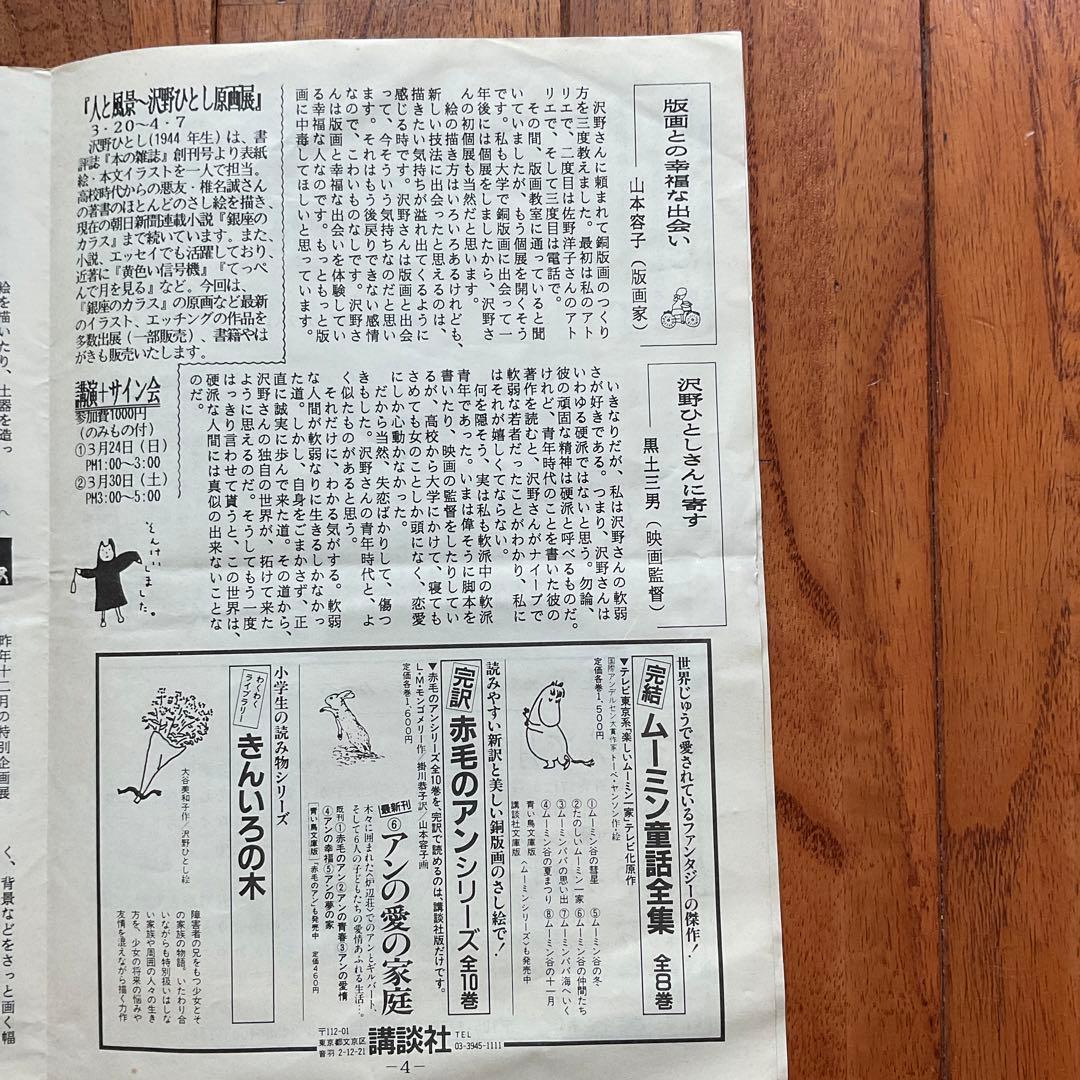 版画との幸福な出会い
山本容子(版画家)
沢野さんに頼まれて銅版画のつくり
方を三度教えました。最初は私のアト
リエで、二度目は佐野洋子さんのアト
リエで、そして三度目は電話で。
その間、版画教室に通っていると聞
いていましたが、もう個展を開くそう
です。私も大学で銅版画に出会って一
年後には個展をしましたから、沢野さ
んの初個展も当然だと思います。
絵の描き方はいろいろあるけれども、
新しい技法に出会ったと思えるのは、
描きたい気持ちが溢れ出てくるように
感じる時です。沢野さんは版画と出会
って、今そういう気持ちなのだと思い
ます。それはもう後戻りできない感情
なので、こわいものなしです。沢野さ
んは版画と幸福な出会いを体験してい
る幸福な人なのです。もっともっと版
画に中毒してほしいと思っています。
『人と風景〜沢野ひとし原画展』
3・20〜4・7
沢野ひとし(1944年生)は、書
評誌『本の雑誌』創刊号より表紙
絵・本文イラストを一人で担当。
高校時代からの悪友・椎名誠さん
の著書のほとんどのさし絵を描き、
現在の朝日新聞連載小説『銀座の
カラス』まで続いています。また、
小説、エッセイでも活躍しており、
近著に『黄色い信号機』『てっぺ
んで月を見る』など。今回は、
『銀座のカラス』の原画など最新
のイラスト、エッチングの作品を
多数出展(一部販売)、書籍やは
がきも販売いたします。
講演+サイン会
参加費1000円
(のみもの付)
①3月24日(日)
PM1:00〜3:00
②3月30日(土)
PM3:00〜5:00
しました。
沢野ひとしさんに寄す
黒土三男(映画監督)
いきなりだが、私は沢野さんの軟弱
さが好きである。つまり、沢野さんは
いわゆる硬派ではないと思う。勿論、
彼の頑固な精神は硬派と呼べるものだ。
けれど、青年時代のことを書いた彼の
著作を読むと、沢野さんがナイーブで
軟弱な若者だったことがわかり、私に
はそれが嬉しくてならない。
何を隠そう、実は私も軟派中の軟派
青年であった。いまは偉そうに脚本を
書いたり、映画の監督をしたりしてい
るが、高校から大学にかけて、寝ても
さめても女のことしか頭になく、恋愛
にしか心動かなかった。
だから当然、失恋ばかりして、傷つ
きもした。沢野さんの青年時代と、よ
く似たものがあると思う。
それだけに、わかる気がする。軟弱
な人間が軟弱なりに生きるしかなかっ
た道。しかし、自身をごまかさず、正
直に誠実に歩んで来た道。その道から、
沢野さんの独自の世界が、拓けて来た
ように思えるのだ。そうしてもう一度
はっきり言わせて貰うと、この世界は、
硬派な人間には真似の出来ないことな
のだ。
世界じゅうで愛されているファンタジーの傑作!
完結 ムーミン童話全集 全8巻
▼テレビ東京系「楽しいムーミン一家」テレビ化原作
国際アンデルセン大賞作家 トーベ・ヤンソン作・絵
定価各巻1,500円
①ムーミン谷の彗星
②たのしいムーミン一家
③ムーミンパパの思い出
④ムーミン谷の夏まつり
⑤ムーミン谷の冬
⑥ムーミン谷の仲間たち
⑦ムーミンパパ海へいく
⑧ムーミン谷の十一月
青い鳥文庫版
講談社文庫版
〈ムーミンシリーズ〉も発売中
読みやすい新訳と美しい銅版画のさし絵で!
完訳 赤毛のアンシリーズ 全10巻
▼赤毛のアンシリーズ全10巻を、完訳で読めるのは、講談社版だけです。
L・M・モンゴメリー作/掛川恭子訳/山本容子画
定価各巻1,600円
最新刊
⑥アンの愛の家庭
木々に囲まれた〈炉辺荘〉でのアンとギルバート、
そして6人の子どもたちの愛情あふれる生活…
既刊 ①赤毛のアン ②アンの青春 ③アンの愛情
④アンの幸福 ⑤アンの夢の家
青い鳥文庫版「赤毛のアン」も発売中 定価460円
小学生の読み物シリーズ
わくわく
ライブラリー
きんいろの木
大谷美和子作/沢野ひとし絵
障害者の兄をもつ少女とそ
の家族の物語。いたわり合
いながらも特別扱いはしな
い家族や周囲の人々の生き
方を、少女の将来の悩みや
友情を混えながら描く力作
〒112-01
東京都文京区
音羽2-12-21
講談社
TEL
03-3945-1111
-4-
絵を描いたり、土器を造っ
昨年十二月の特別企画展
く、背景などをさっと画く幅